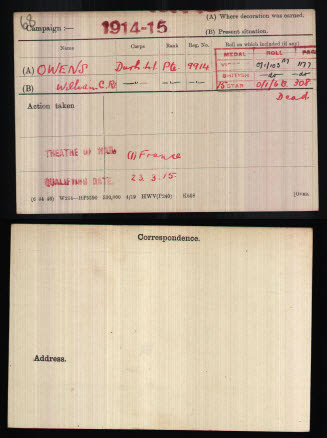 68
Campaign :— 1914-15
(A) Where decoration was earned.
(B) Present situation.
Name Corps Rank Reg. No. Roll on which included (if any)
MEDAL ROLL PAGE
(A) OWENS Durh. L.I. Pte. 9914 VICTORY
(B) William C. BRITISH —do— —do—
15 STAR 308
Action taken Dead
THEATRE OF WAR. (1) France
QUALIFYING DATE. 23.3.15.
K608 [Over
Correspondence.
Address.